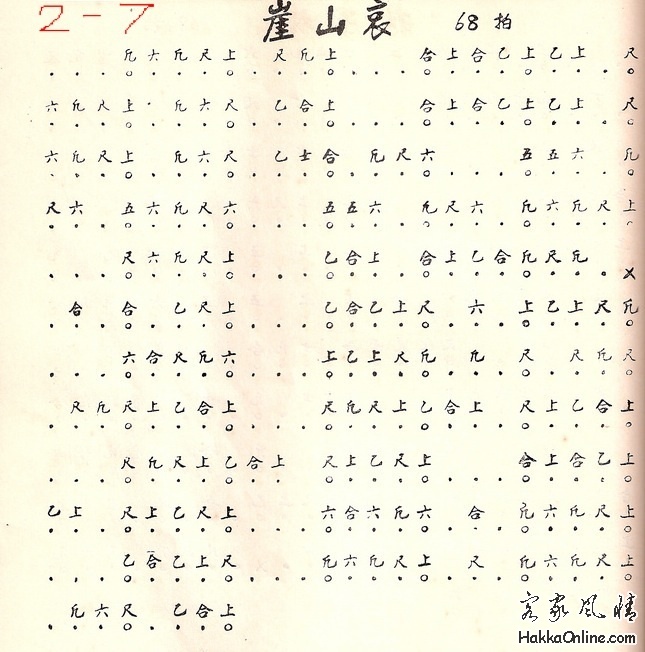 2-7 崖山哀 68拍
凡六凡尺上 尺凡上 合上合乙上乙上 尺
六凡尺上 凡六尺 乙合上 合上合乙上乙上 尺
六凡尺上 凡六尺 乙士合 凡尺六 五五六 凡
尺六 五六凡尺六 五五六 凡尺六 凡六凡尺上
尺六凡尺上 乙合上 合上乙合凡尺凡
合 合 乙尺上 乙合乙上尺 六 上乙上尺凡
六合尺凡六 上乙上尺凡 凡 尺 尺凡尺
尺凡尺上乙合上 尺凡尺上乙合上 尺上乙合上
尺凡尺上乙合上 尺上乙尺上 合上合乙上
乙上 尺上乙尺上 六合六凡六 合 凡六凡尺上
乙合乙上尺 凡六凡尺上 尺 凡六凡尺上
凡六尺 乙合上
客家风情
HakkaOnline.com